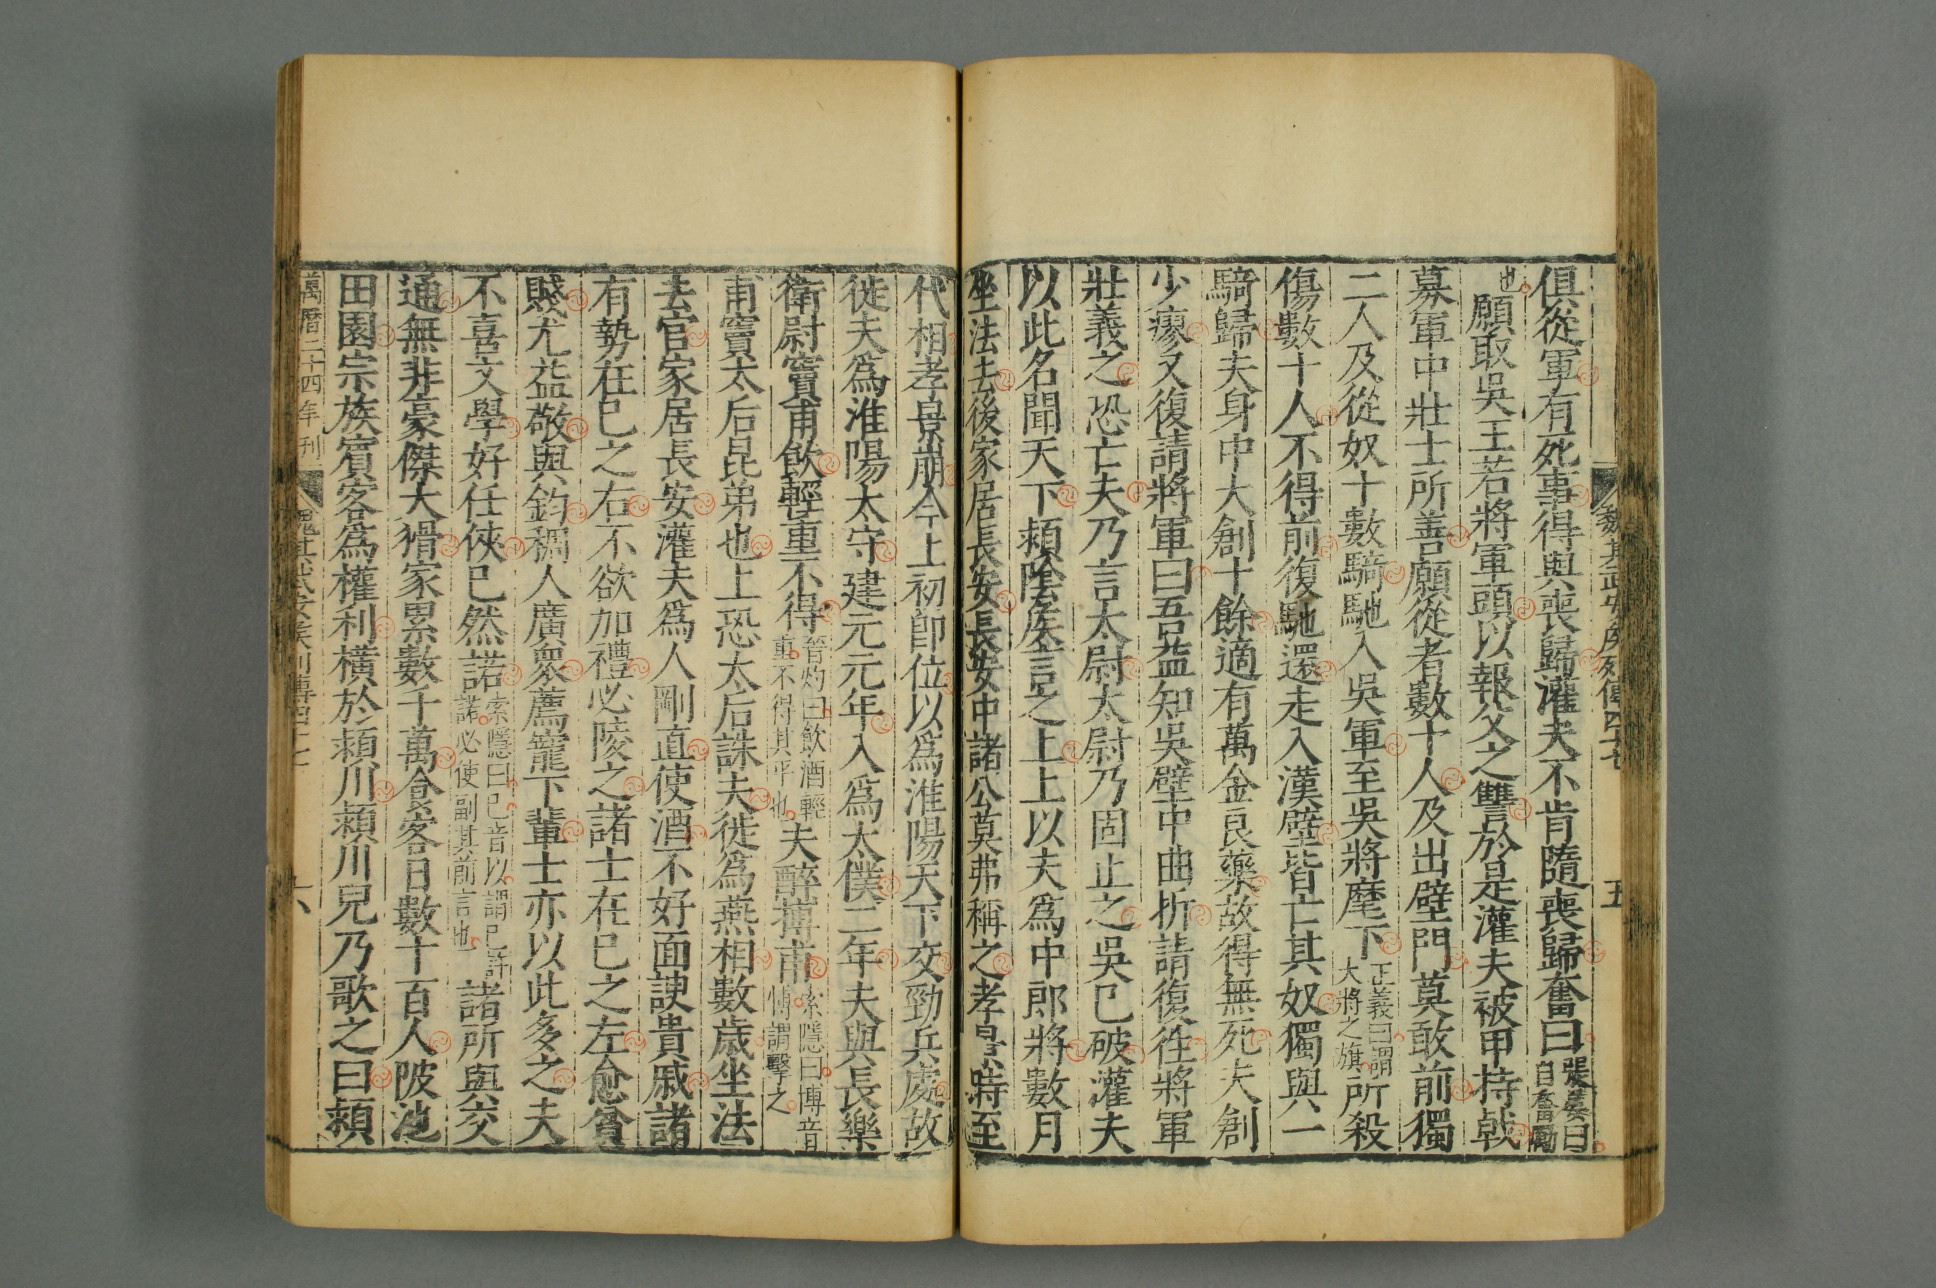 魏其武安侯列傳四十七 五
俱從軍有死事得與喪歸灌夫不肯隨喪歸奮曰張晏曰自奮勵
也願取吳王若將軍頭以報父之讐於是灌夫被甲持戟
募軍中壯士所善願從者數十人及出壁門莫敢前獨
二人及從奴十數騎馳入吳軍至吳將麾下正義曰謂大將之旗所殺
傷數十人不得前復馳還走入漢壁皆亡其奴獨與一
騎歸夫身中大創十餘適有萬金良藥故得無死夫創
少瘳又復請將軍曰吾益知吳壁中曲折請復往將軍
壯義之恐亡夫乃言太尉太尉乃固止之吳已破灌夫
以此名聞天下潁陰侯言之上上以夫爲中郎將數月
坐法去後家居長安長安中諸公莫弗稱之孝景時至
代相孝景崩今上初卽位以爲淮陽天下交勁兵處故
徙夫爲淮陽太守建元元年入爲太僕二年夫與長樂
衛尉竇甫飲輕重不得晉灼曰飲酒輕重不得其平也夫醉搏甫索隱曰搏音博謂擊之
甫竇太后昆弟也上恐太后誅夫徙爲燕相數歲坐法
去官家居長安灌夫爲人剛直使酒不好面諛貴戚諸
有勢在已之右不欲加禮必陵之諸士在已之左愈貧
賤尤益敬與鈞稠人廣衆薦寵下輩士亦以此多之夫
不喜文學好任俠已然諾索隱曰已音以謂已許諾必使副其前言也諸所與交
通無非豪傑大猾家累數千萬食客日數十百人陂池
田園宗族賓客爲權利橫於潁川潁川兒乃歌之曰潁
萬曆二十四年刊 魏其武安侯列傳四十七 六